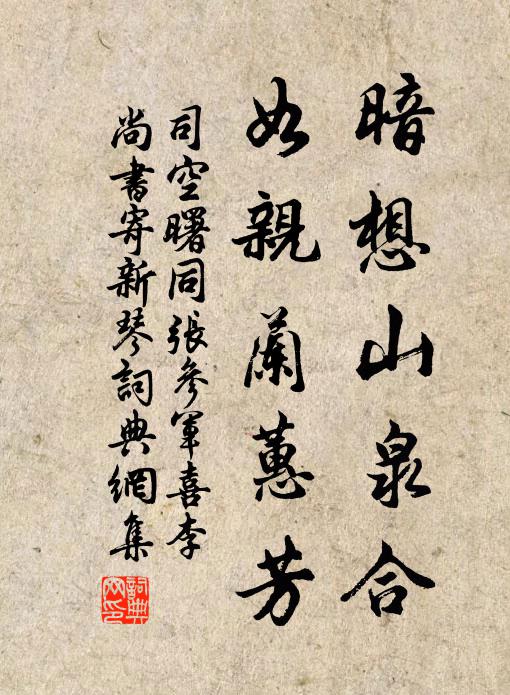 暗想山泉合
如親蘭蕙芳
司空曙同張參軍喜李
尚書寄新琴詞典網集
詞典網印